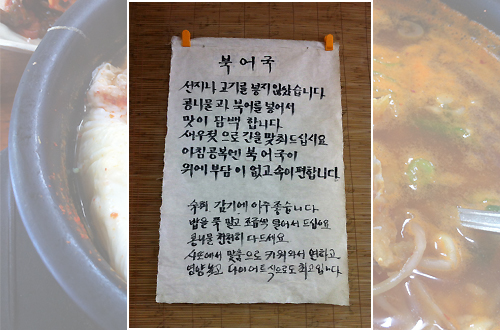 북어국
선지나 고기를 넣지 않았습니다
콩나물과 북어를 넣어서
맛이 담백 합니다
새우젓으로 간을 맞춰드십시요
아침공복엔 북어국이
위에 부담이 없고 속이 편합니다
숙취 감기에 아주 좋습니다
밥을 푹 말고 조금씩 덜어서 드십시요
콩나물 천천히 다 드세요
시루에서 맞춤으로 키워와서 연하고
영양 있고 다이어트식으로도 최고입니다